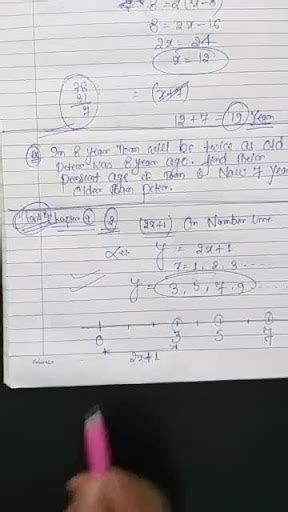 8 = 2(x-8)
8 = 2x-16
2x = 24
x = 12
= (x+7)
12+7 = 19 Year
In 8 year Tham will be twice as old
Peter was 8 year ago. find their
Present age if Tham is Now 7 year
older than peter.
Chapter
2 (2x+1) On Nomber line
Let. y = 2x+1
x = 1, 2, 3 ....
y = 3, 5, 7, 9 ....
0 3 5 7
2x+1